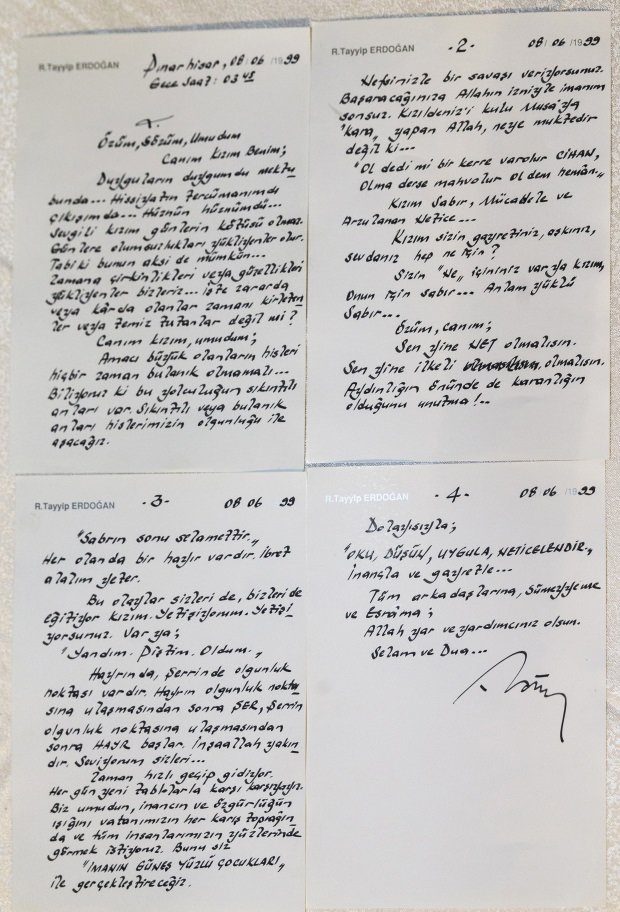 R.Tayyip ERDOĞAN
Pınarhisar, 08/06/1999
Gece Saat: 03 45
Özüm, Sözüm, Umudum
Canım Kızım Benim;
Duyguların duygumdu mektu
bunda... Hissiyatın tercümanımdı
çıkışımda... Hüznün hüznümdü...
Sevgili kızım günlerin kötüsü olmaz.
Günlere olumsuzlukları yükliyenler olur.
Tabi ki bunun aksi de mümkün...
Zamana çirkinlikleri veya güzellikleri
yükliyenler bizleriz... İşte zararda
veya kârda olanlar zamanı kirleten-
ler veya temiz tutanlar değil mi?
Canım kızım, umudum;
Amacı büyük olanların hisleri
hiçbir zaman bulanık olmamalı...
Biliyoruz ki bu yolculuğun sıkıntılı
anları var. Sıkıntılı veya bulanık
anları hislerimizin olgunluğu ile
aşacağız.
R.Tayyip ERDOĞAN -2- 08/06/1999
Nefsinizle bir savaşı veriyorsunuz.
Başaracağınıza Allahın izniyle imanım
sonsuz. Kızıldeniz'i kulu Musa'ya
"kara" yapan Allah, neye muktedir
değil ki...
"Ol dedi mi bir kerre varolur CİHAN,
Olma derse mahvolur ol dem hemân."
Kızım Sabır, Mücadele ve
Arzulanan Netice...
Kızım sizin gayretiniz, aşkınız,
sevdanız hep ne için?
Sizin "Ne" içininiz var ya kızım,
Onun için sabır... Anlam yüklü
Sabır...
Özüm, canım;
Sen yine NET olmalısın.
Sen yine ilkeli olmalısın, olmalısın.
Aydınlığın önünde de karanlığın
olduğunu unutma!..
R.Tayyip ERDOĞAN -3- 08 06 99
"Sabrın sonu selamettir."
Her olanda bir hayır vardır. İbret
alalım yeter.
Bu olaylar sizleri de, bizleri de
eğitiyor kızım. Yetişiyorum. Yetişi
yorsunuz. Var ya;
"Yandım. Piştim. Oldum."
Hayrında, Şerrinde olgunluk
noktası vardır. Hayrın olgunluk nokta
sına ulaşmasından sonra ŞER, Şerrin
olgunluk noktasına ulaşmasından
sonra HAYR başlar. İnşaallah yakın
dır. Seviyorum sizleri...
Zaman hızlı geçip gidiyor.
Her gün yeni tablolarla karşı karşıyayız.
Biz umudun, inancın ve özgürlüğün
ışığını vatanımızın her karış toprağın
da ve tüm insanlarımızın yüzlerinde
görmek istiyoruz. Bunu siz
"İMANIN GÜNEŞ YÜZLÜ ÇOCUKLARI"
ile gerçekleştireceğiz.
R.Tayyip ERDOĞAN -4- 08 06/1999
Dolayısıyla;
"OKU, DÜŞÜN, UYGULA, NETİCELENDİR."
İnançla ve gayretle...
Tüm arkadaşlarına, Sümeyyeme
ve Esrâma;
Allah yar ve yardımcınız olsun.
Selam ve Dua...